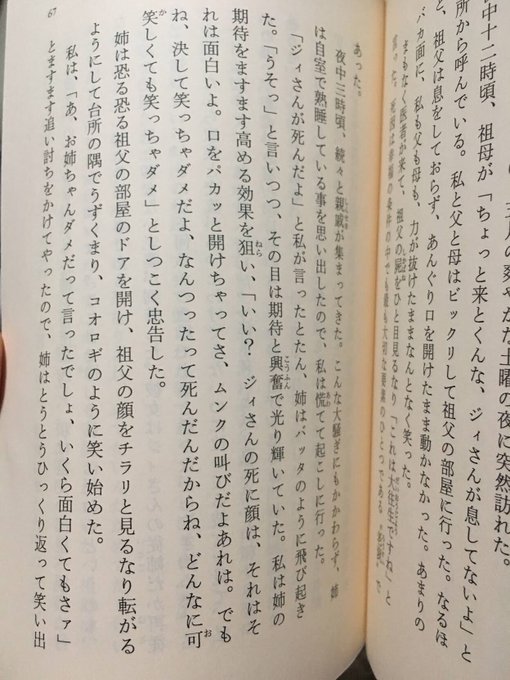 の爽やかな土曜の夜に突然訪れた。
中十二時頃、祖母が「ちょっと来とくんな、ジィさんが息してないよ」と
所から呼んでいる。私と父と母はビックリして祖父の部屋に行った。なるほ
と、祖父は息をしておらず、あんぐり口を開けたまま動かなかった。あまりの
バカ面に、私も父も母も、力が抜けたままなんとなく笑った。
まもなく医者が来て、祖父の屍をひと目見るなり「これは大往生ですね」と
った。死因は
あった。
夜中三時頃、続々と親戚が集まってきた。こんな大騒ぎにもかかわらず、姉
は自室で熟睡している事を思い出したので、私は慌てて起こしに行った。
「ジィさんが死んだよ」と私が言ったとたん、姉はバッタのように飛び起き
た。「うそっ」と言いつつ、その目は期待と興奮で光り輝いていた。私は姉の
期待をますます高める効果を狙い、「いい？　ジィさんの死に顔は、それはそ
れは面白いよ。口をパカッと開けちゃってさ、ムンクの叫びだよあれは。でも
ね、決して笑っちゃダメだよ、なんつったって死んだんだからね、どんなに可
笑しくても笑っちゃダメ」としつこく忠告した。
姉は恐る恐る祖父の部屋のドアを開け、祖父の顔をチラリと見るなり転がる
ようにして台所の隅でうずくまり、コオロギのように笑い始めた。
私は、「あ、お姉ちゃんダメだって言ったでしょ、いくら面白くてもさァ」
とますます追い討ちをかけてやったので、姉はとうとうひっくり返って笑い出
67